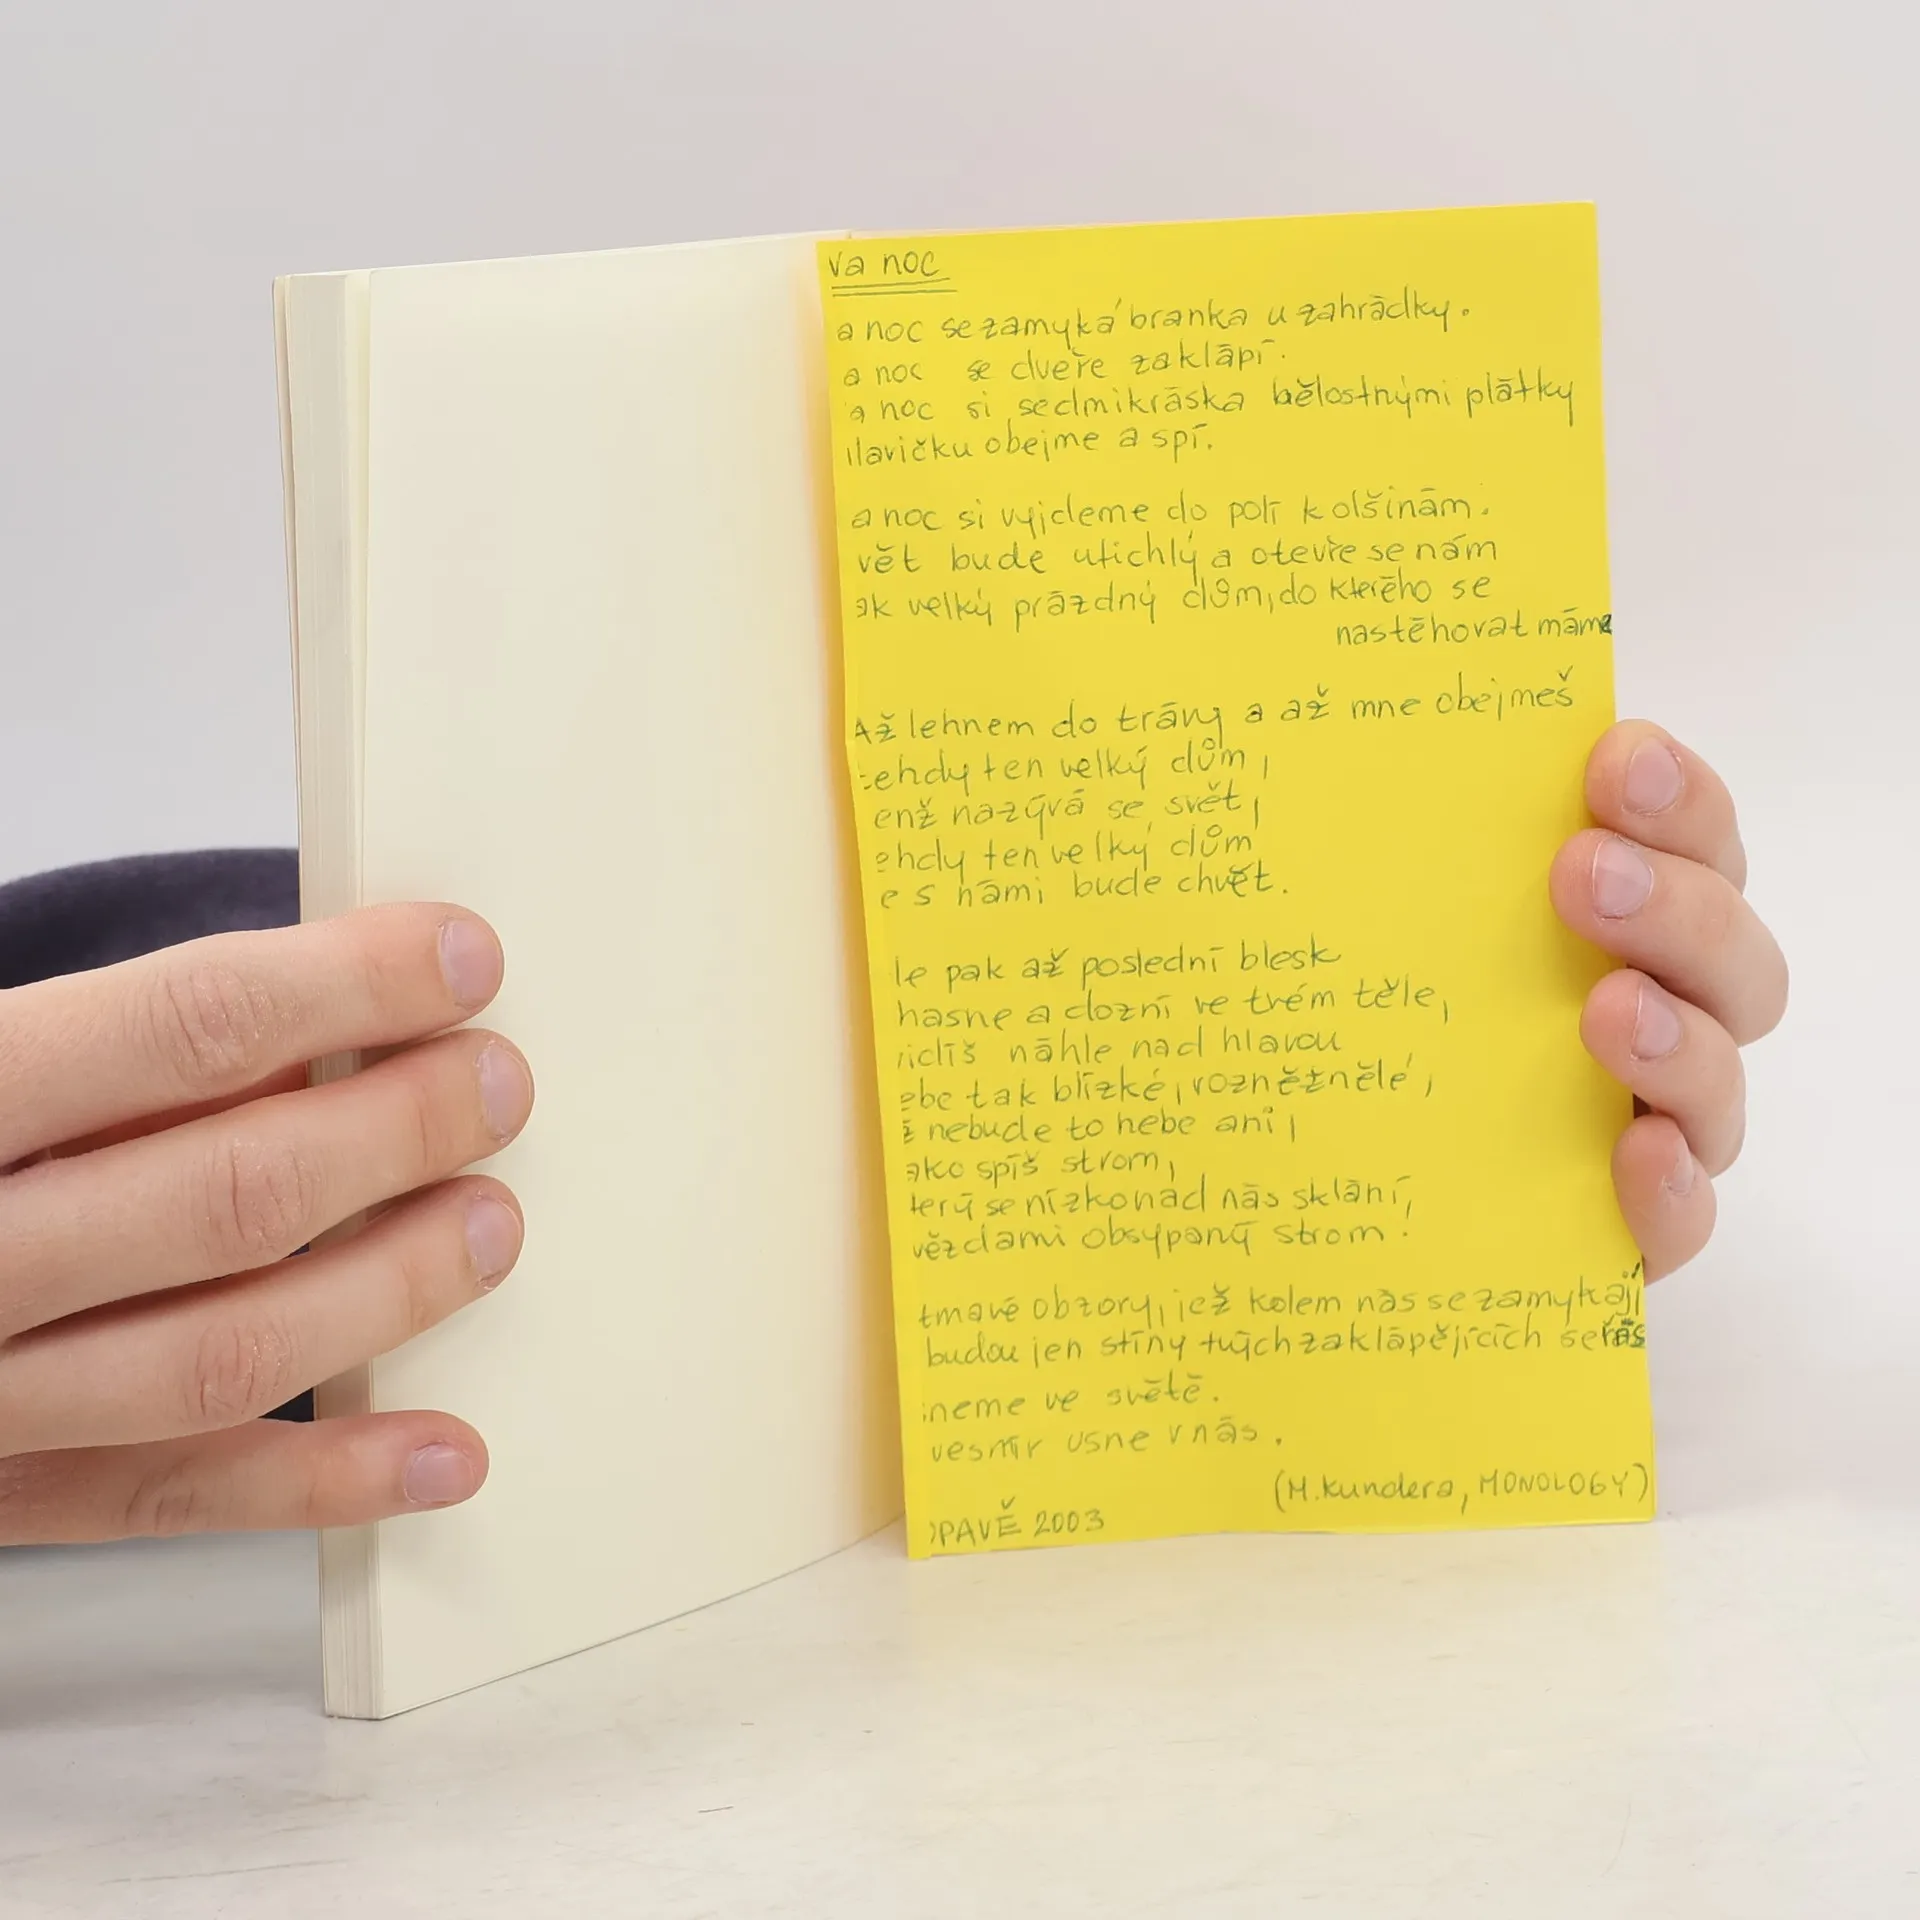 va noc
a noc se zamyká branka u zahrádky.
a noc se dveře zaklápí.
a noc si sedmikráska bělostnými plátky
lavičku obejme a spí.
a noc si vyjdeme do polí k olšinám.
vět bude utichlý a otevře se nám
ak velký prázdný dům, do kterého se
nastěhovat máme
Až lehnem do trávy a až mne obejmeš
tehdy ten velký dům,
enž nazývá se svět,
ehdy ten velký dům
e s námi bude chvět.
le pak až poslední blesk
hasne a dozní ve tvém těle,
vidíš náhle nad hlavou
ebe tak blízké, rozněžnělé,
ž nebude to nebe ani,
ako spíš strom,
terý se nízko nad nás sklání,
vězdami obsypaný strom.
tmavé obzory, jež kolem nás se zamykají
budou jen stíny tvých zaklápějících se řas
neme ve světě.
vesmír usne v nás.
(M. Kundera, MONOLOGY)
OPAVĚ 2003